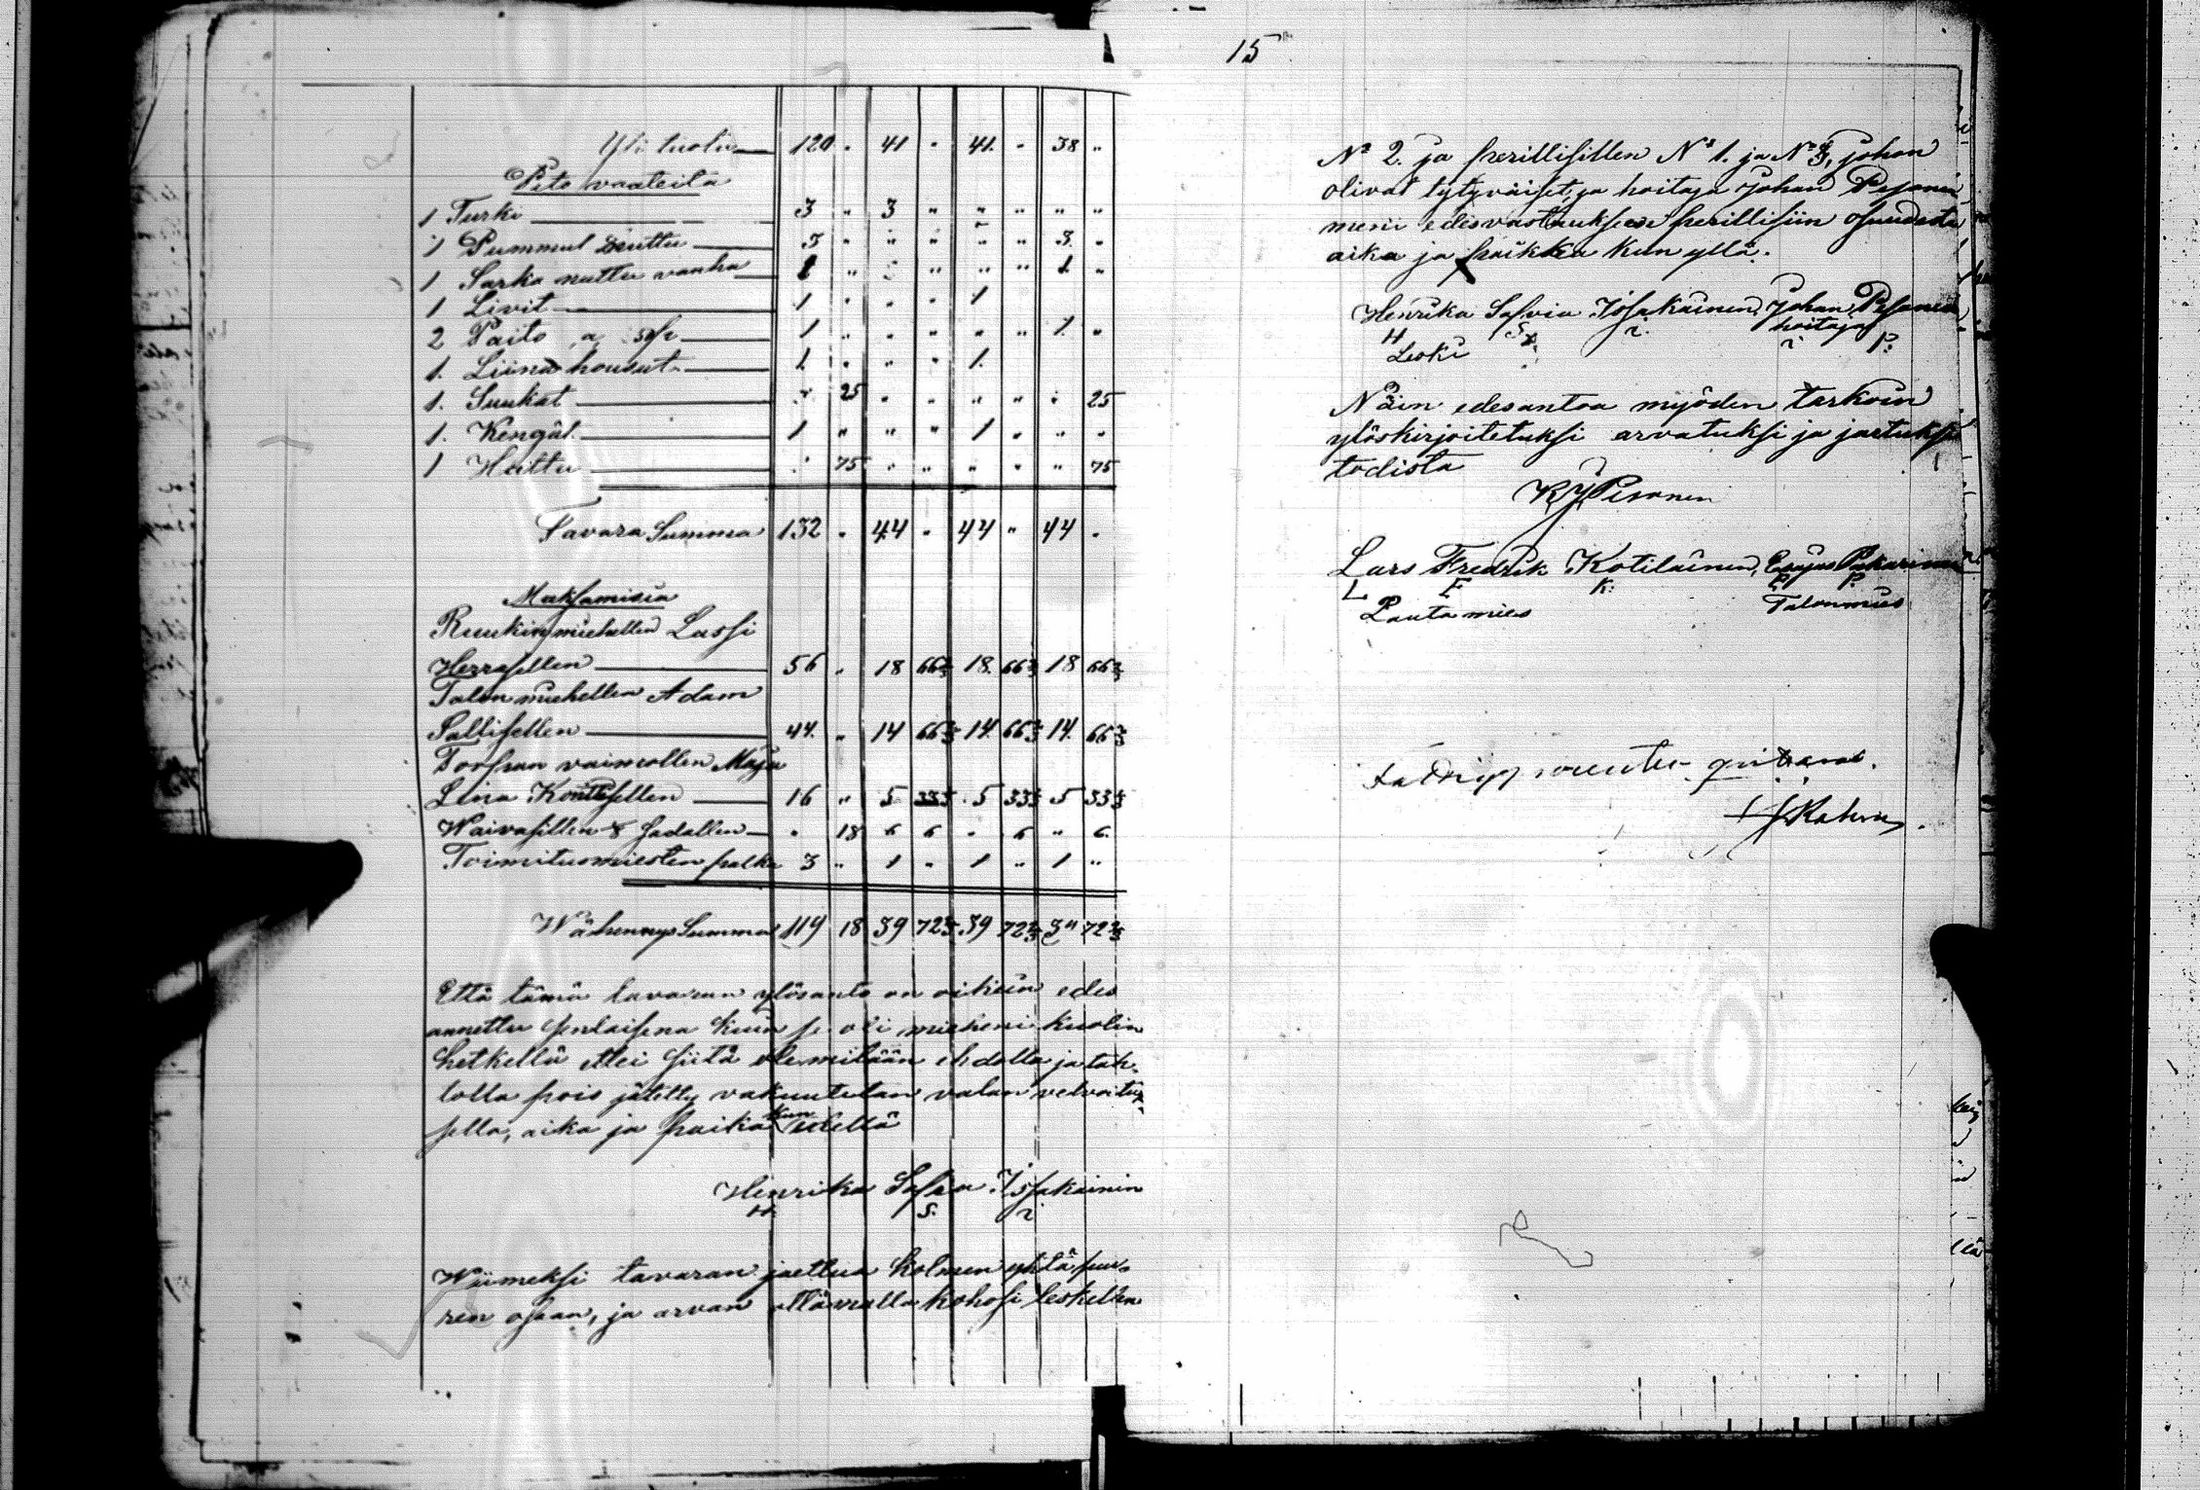 Yli tuolu 120 " 41 " 41. " 38 "
Pito vaateita
1 Turki 3 " 3 " " " " "
1 Pummul nuttu 3 " " " " " 3. "
1 Sarka nuttu vanha 1 " " " " " 1. "
1 Livit 1 " " " 1
2 Paito a 1 " " " " " 1. "
1. Liina housut 1. " " " 1.
1. Suukat " 25 " " " " " 25
1. Kengät 1 " " " 1 " " "
1 Hattu " 75 " " " " " 75
Tavara Summa 132 " 44 " 44 " 44 "
Maksamisia
Ruukin miehellen Lassi
Herrasellen 56 " 18 66⅔ 18. 66⅔ 18 66⅔
Talon miehellen Adam
Pallisellen 44. " 14 66⅔ 14 66⅔ 14. 66⅔
Torpan vaimollen Maja
Lina Konttisellen 16 " 5 33⅓ 5 33⅓ 5 33⅓
Waivasillen ⅛ sadallen " 18 " 6 " 6 " 6
Toimitusmiesten palka 3 " 1 " 1 " 1 "
Wähennys Summa 119 18 39 72⅔ 39 72⅔ 3" 72⅔
Että tämä tavaran ylösanto on oikein edes
annettu senlaisena kuin se oli mieheni kuolin
hetkellä ettei siitä ole mitään ehdolla ja tah-
tolla pois jätetty vakuutetan valan velvoituk-
sella, aika ja paika kun edellä
Henrika Sofia Issakainin
H. S. I
Wiimeksi tavaran jaettua kolmen yhtä suu-
ren osaan, ja arvan ollävialla kohosi leskellen
15
No 2. ja perillisillen No 1. ja No 3, johon
olivat tytyväiset, ja hoitaja Johan Pesonen
meni edesvastaukseen perillisiin osuudesta
aika ja paikka kun yllä.
Henrika Sofia Issakainen, Johan Pesonen
H S. I. hoitaja
Leski I P:
Näin edesantoa myöden tarkoin
ylöskirjoitetuksi arvatuksi ja jaetuksi
todista
K J Pesonen
Lars Fredrik Kotilainen, Esajas Pakarinen
L F K: E P.
Lautamies Talonmies